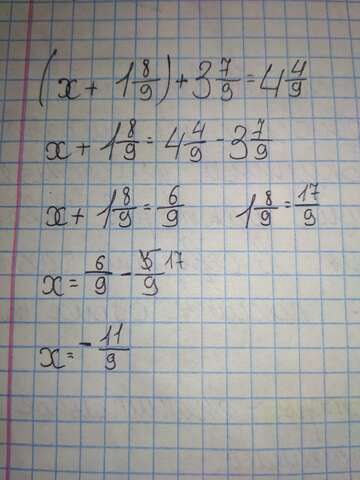 (x + 1 8/9) + 3 7/9 = 4 4/9
x + 1 8/9 = 4 4/9 - 3 7/9
x + 1 8/9 = 6/9 1 8/9 = 17/9
x = 6/9 - 17/9
x = - 11/9